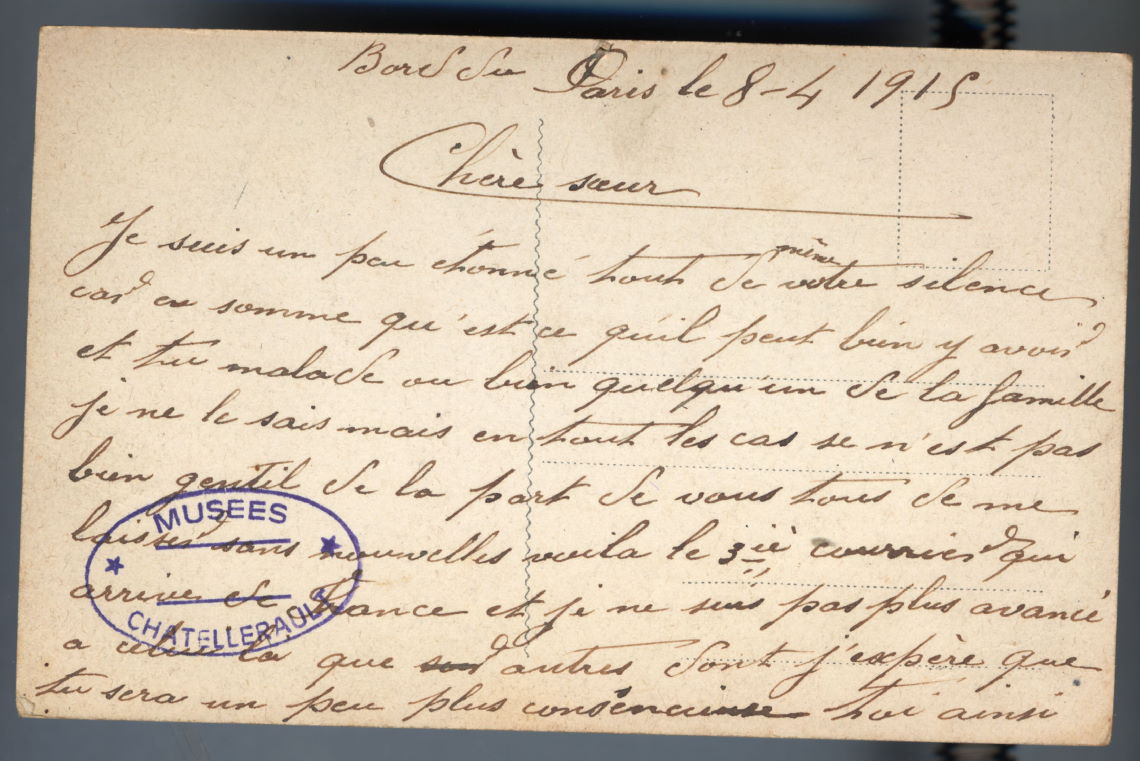 Bord du Paris le 8-4 1915
Chère sœur
Je suis un peu étonné tout de même votre silence
car en somme qu'est ce qu'il peut bien y avoir
et tu malade ou bien quelqu'un de la famille
je ne le sais mais en tout les cas se n'est pas
bien gentil de la part de vous tous de me
laisser sans nouvelles voila le 3iè courrier qui
arrive de France et je ne suis pas plus avancé
a celui la que autres dont j'expère que
tu sera un peu plus consencieuse toi ainsi
MUSEES
CHATELLERAULT